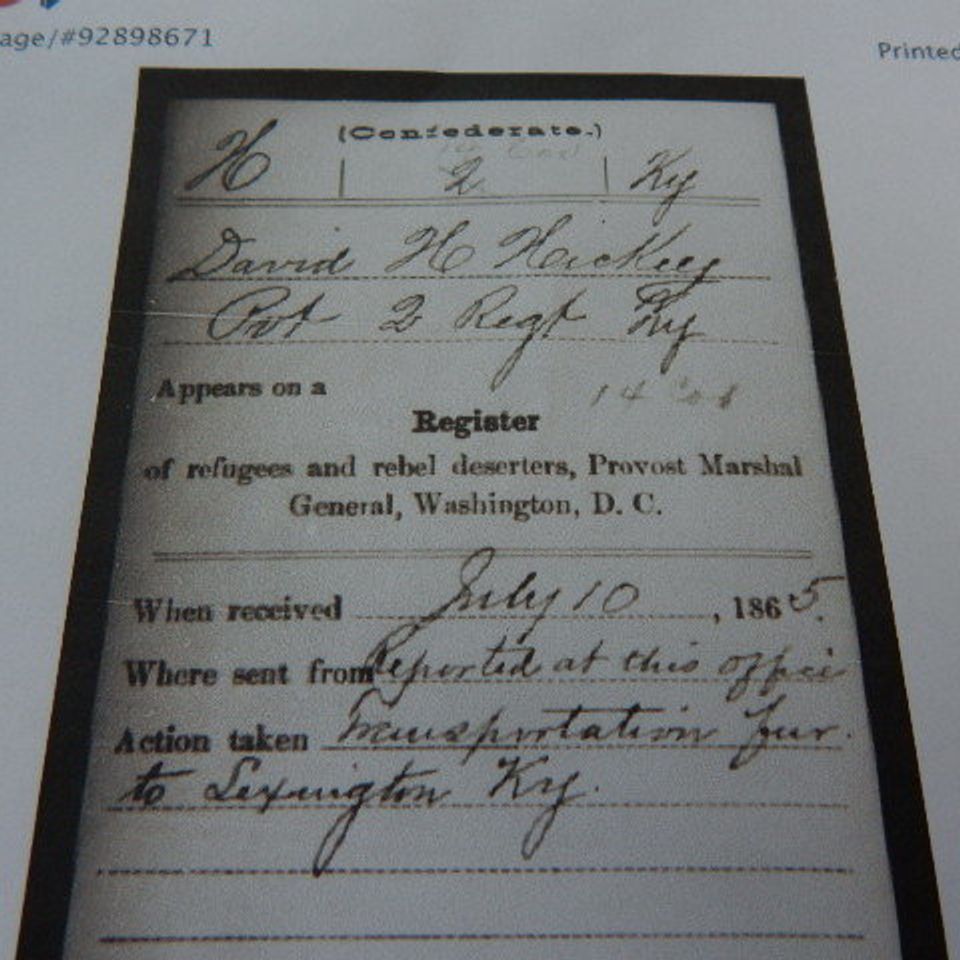 age/#92898671
Printed
(Confederate.)
H | 2 | Ky
David H Hickey
Pvt 2 Regt Ky
Appears on a
14
Register
of refugees and rebel deserters, Provost Marshal
General, Washington, D. C.
When received July 10, 1865.
Where sent from Reported at this office
Action taken Transportation fur.
to Lexington Ky.